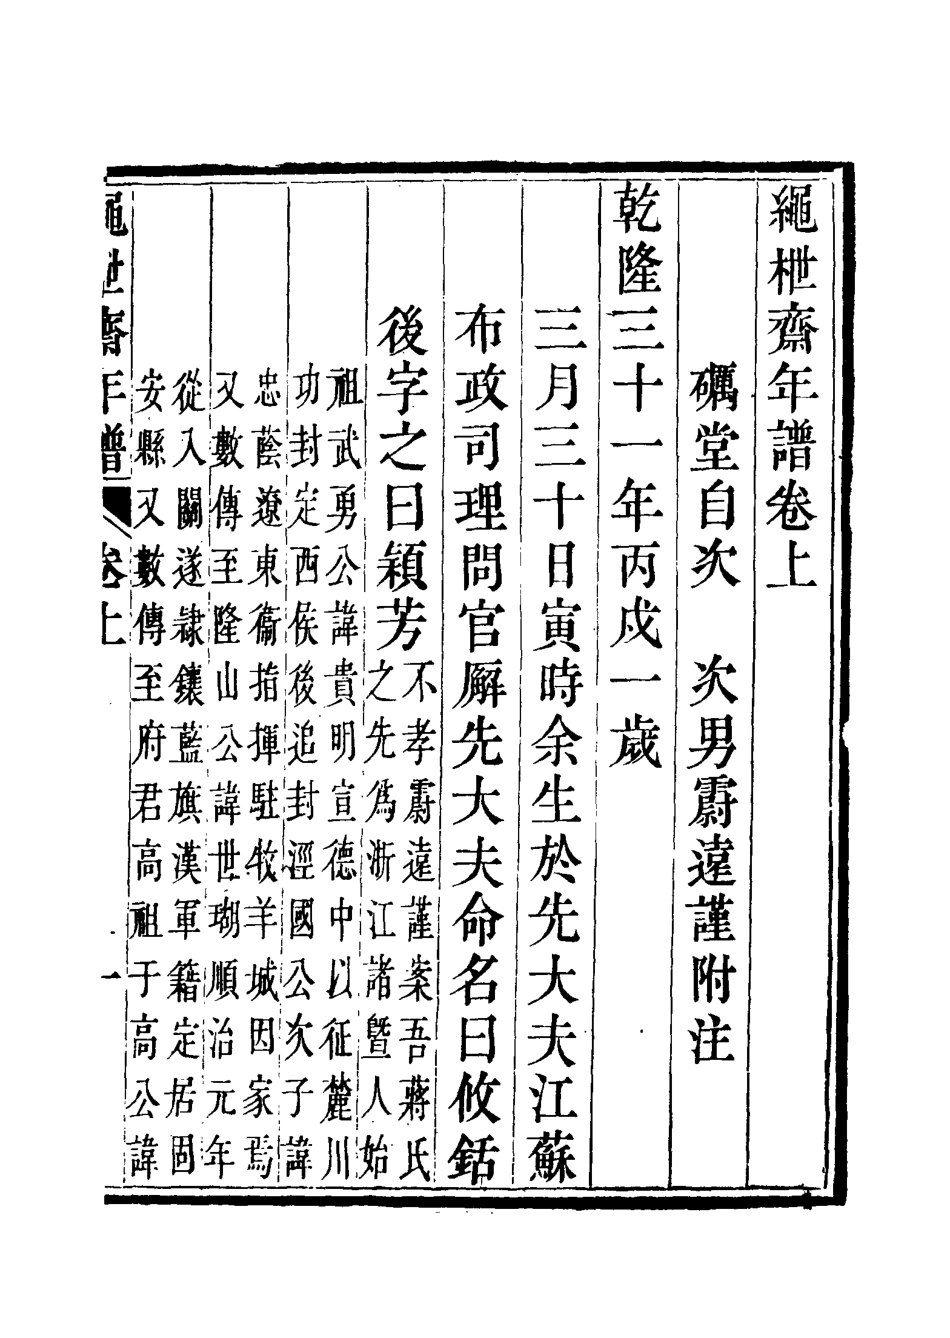 繩枻齋年譜卷上
礪堂自次　次男霨遠謹附注
乾隆三十一年丙戍一歲
三月三十日寅時余生於先大夫江蘇
布政司理問官廨先大夫命名曰攸銛
後字之曰穎芳
不孝霨遠謹案吾蔣氏
之先爲浙江諸曁人始
祖武勇公諱貴明宣德中以征麓川
功封定西侯後追封涇國公次子諱
忠蔭遼東衞指揮駐牧羊城因家焉
又數傳至隆山公諱世瑚順治元年
從入關遂隸鑲藍旗漢軍籍定居固
安縣又數傳至府君高祖于高公諱
繩世齋年譜　卷上　一